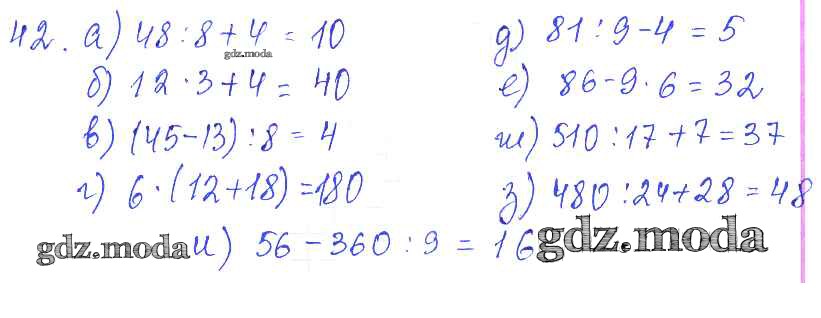 42. а) 48 : 8 + 4 = 10
gdz.moda
б) 12 · 3 + 4 = 40
в) (45 - 13) : 8 = 4
г) 6 · (12 + 18) = 180
д) 81 : 9 - 4 = 5
е) 86 - 9 · 6 = 32
ж) 510 : 17 + 7 = 37
з) 480 : 24 + 28 = 48
gdz.moda и) 56 - 360 : 9 = 16 gdz.moda